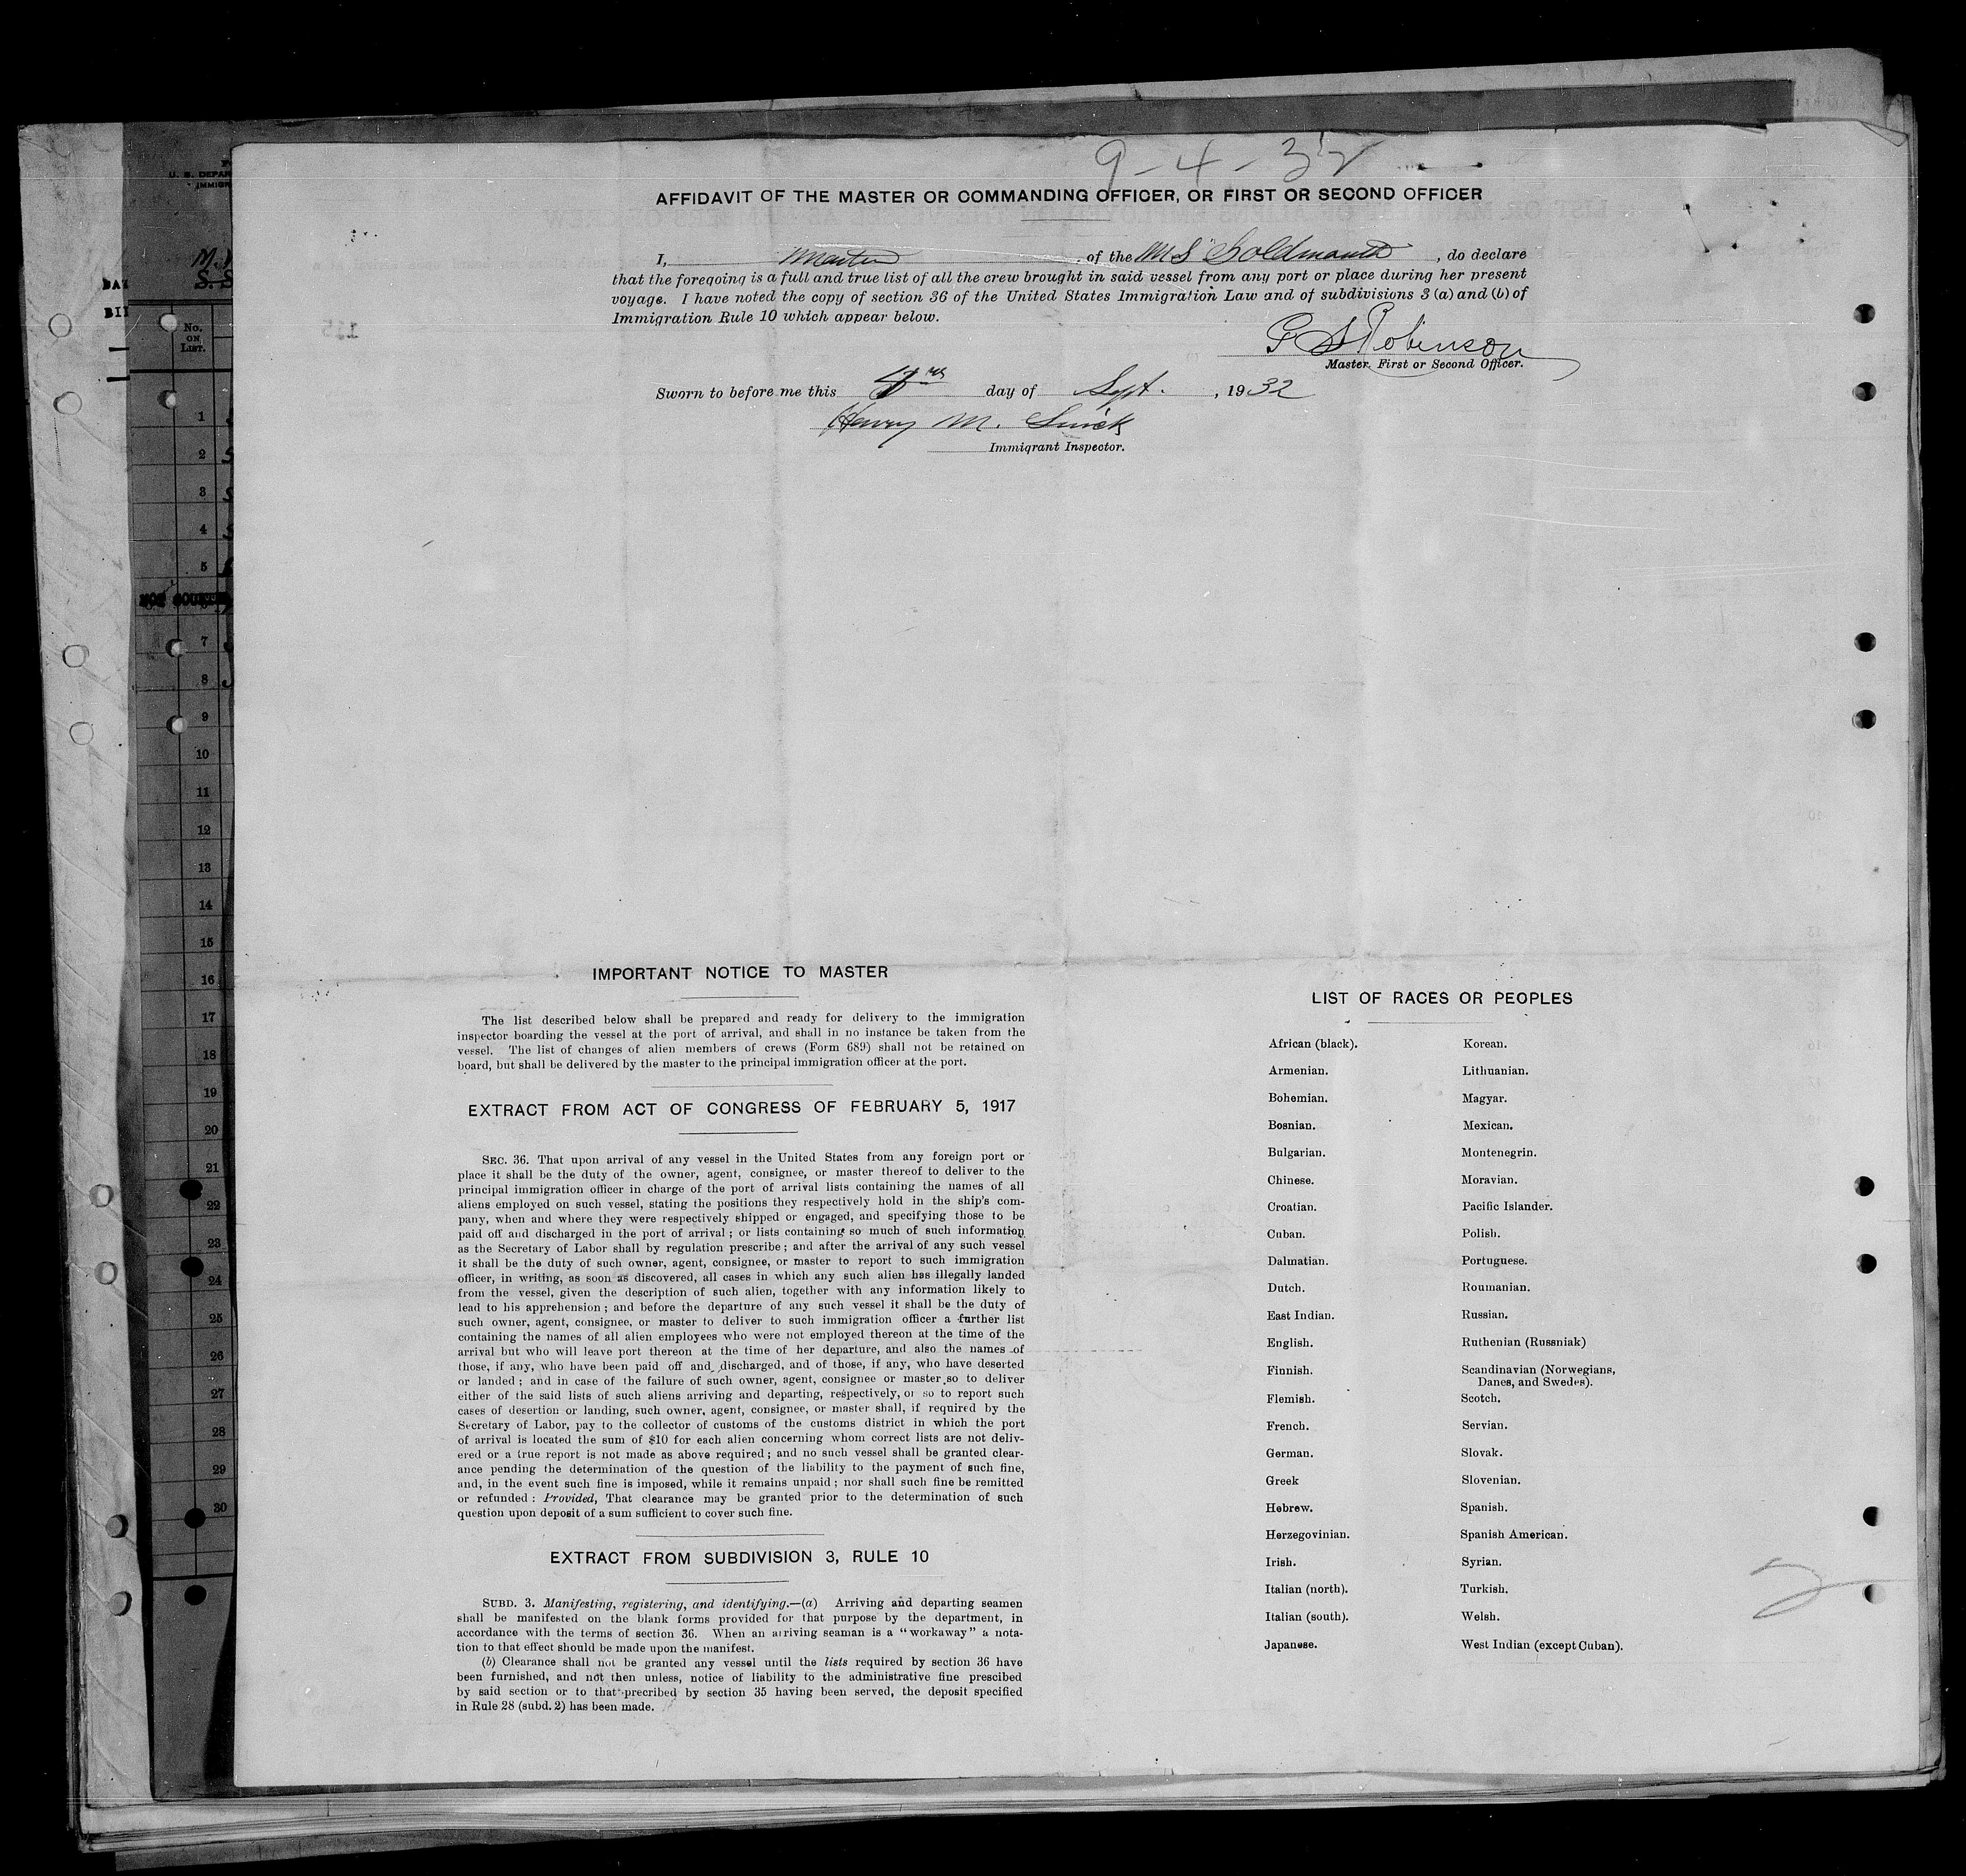 9-4-32
AFFIDAVIT OF THE MASTER OR COMMANDING OFFICER, OR FIRST OR SECOND OFFICER
I, Master, of the MS Goldmouth, do declare
that the foregoing is a full and true list of all the crew brought in said vessel from any port or place during her present
voyage. I have noted the copy of section 36 of the United States Immigration Law and of subdivisions 3 (a) and (b) of
Immigration Rule 10 which appear below.
Robinson
Master, First or Second Officer.
Sworn to before me this day of Sept., 1932
Henry M.
Immigrant Inspector.
U. S. DEPAR
IMMIGR
M.
S. S
DAT
BII
No.
ON
LIST.
1
2
3
4
5
7
8
9
10
11
12
13
14
15
16
17
18
19
20
21
22
23
24
25
26
27
28
29
30
IMPORTANT NOTICE TO MASTER
The list described below shall be prepared and ready for delivery to the immigration
inspector boarding the vessel at the port of arrival, and shall in no instance be taken from the
vessel. The list of changes of alien members of crews (Form 689) shall not be retained on
board, but shall be delivered by the master to the principal immigration officer at the port.
EXTRACT FROM ACT OF CONGRESS OF FEBRUARY 5, 1917
SEC. 36. That upon arrival of any vessel in the United States from any foreign port or
place it shall be the duty of the owner, agent, consignee, or master thereof to deliver to the
principal immigration officer in charge of the port of arrival lists containing the names of all
aliens employed on such vessel, stating the positions they respectively hold in the ship's com-
pany, when and where they were respectively shipped or engaged, and specifying those to be
paid off and discharged in the port of arrival; or lists containing so much of such information
as the Secretary of Labor shall by regulation prescribe; and after the arrival of any such vessel
it shall be the duty of such owner, agent, consignee, or master to report to such immigration
officer, in writing, as soon as discovered, all cases in which any such alien has illegally landed
from the vessel, given the description of such alien, together with any information likely to
lead to his apprehension; and before the departure of any such vessel it shall be the duty of
such owner, agent, consignee, or master to deliver to such immigration officer a further list
containing the names of all alien employees who were not employed thereon at the time of the
arrival but who will leave port thereon at the time of her departure, and also the names of
those, if any, who have been paid off and discharged, and of those, if any, who have deserted
or landed; and in case of the failure of such owner, agent, consignee or master so to deliver
either of the said lists of such aliens arriving and departing, respectively, or so to report such
cases of desertion or landing, such owner, agent, consignee, or master shall, if required by the
Secretary of Labor, pay to the collector of customs of the customs district in which the port
of arrival is located the sum of $10 for each alien concerning whom correct lists are not deliv-
ered or a true report is not made as above required; and no such vessel shall be granted clear-
ance pending the determination of the question of the liability to the payment of such fine,
and, in the event such fine is imposed, while it remains unpaid; nor shall such fine be remitted
or refunded: Provided, That clearance may be granted prior to the determination of such
question upon deposit of a sum sufficient to cover such fine.
EXTRACT FROM SUBDIVISION 3, RULE 10
SUBD. 3. Manifesting, registering, and identifying.—(a) Arriving and departing seamen
shall be manifested on the blank forms provided for that purpose by the department, in
accordance with the terms of section 36. When an arriving seaman is a "workaway" a nota-
tion to that effect should be made upon the manifest.
(b) Clearance shall not be granted any vessel until the lists required by section 36 have
been furnished, and not then unless, notice of liability to the administrative fine prescibed
by said section or to that precribed by section 35 having been served, the deposit specified
in Rule 28 (subd. 2) has been made.
LIST OF RACES OR PEOPLES
African (black). Korean.
Armenian. Lithuanian.
Bohemian. Magyar.
Bosnian. Mexican.
Bulgarian. Montenegrin.
Chinese. Moravian.
Croatian. Pacific Islander.
Cuban. Polish.
Dalmatian. Portuguese.
Dutch. Roumanian.
East Indian. Russian.
English. Ruthenian (Russniak)
Finnish. Scandinavian (Norwegians,
Danes, and Swedes).
Flemish. Scotch.
French. Servian.
German. Slovak.
Greek Slovenian.
Hebrew. Spanish.
Herzegovinian. Spanish American.
Irish. Syrian.
Italian (north). Turkish.
Italian (south). Welsh.
Japanese. West Indian (except Cuban).
2